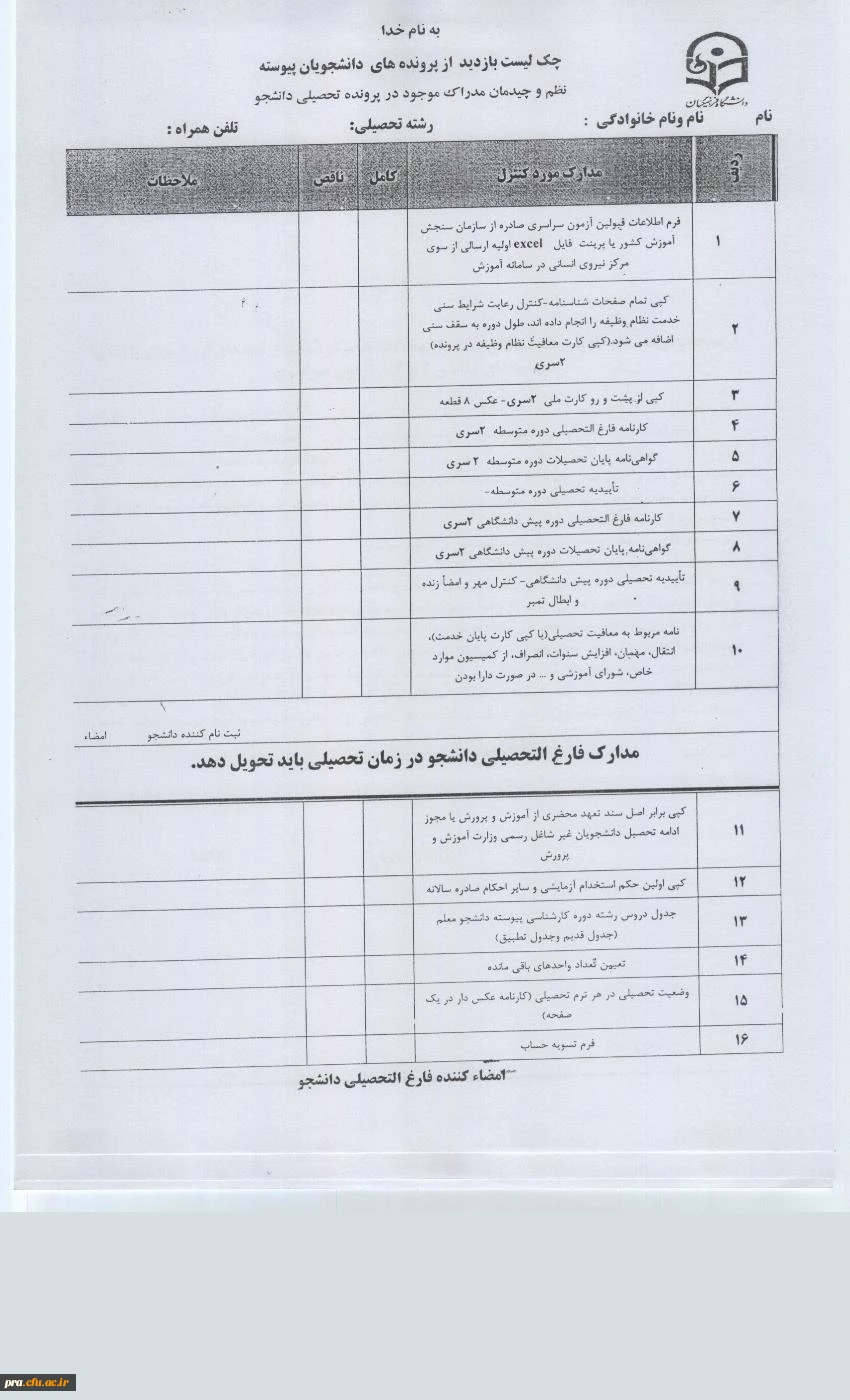 به نام خدا
چک لیست بازدید از پرونده های دانشجویان پیوسته
نظم و چیدمان مدراک موجود در پرونده تحصیلی دانشجو
دانشگاه فرهنگیان
نام نام ونام خانوادگی : رشته تحصیلی: تلفن همراه :
ردیف مدارک مورد کنترل کامل ناقص ملاحظات
۱ فرم اطلاعات قبولین آزمون سراسری صادره از سازمان سنجش
آموزش کشور یا پرینت فایل excel اولیه ارسالی از سوی
مرکز نیروی انسانی در سامانه آموزش
۲ کپی تمام صفحات شناسنامه-کنترل رعایت شرایط سنی
خدمت نظام وظیفه را انجام داده اند، طول دوره به سقف سنی
اضافه می شود.(کپی کارت معافیت نظام وظیفه در پرونده)
۲سری
۳ کپی از پشت و رو کارت ملی ۲سری- عکس ۸ قطعه
۴ کارنامه فارغ التحصیلی دوره متوسطه ۲سری
۵ گواهی‌نامه پایان تحصیلات دوره متوسطه ۲ سری
۶ تأییدیه تحصیلی دوره متوسطه-
۷ کارنامه فارغ التحصیلی دوره پیش دانشگاهی ۲سری
۸ گواهی‌نامه پایان تحصیلات دوره پیش دانشگاهی ۲سری
۹ تأییدیه تحصیلی دوره پیش دانشگاهی- کنترل مهر و امضأ زنده
و ابطال تمبر
۱۰ نامه مربوط به معافیت تحصیلی(یا کپی کارت پایان خدمت)،
انتقال، مهمان، افزایش سنوات، انصراف، از کمیسیون موارد
خاص، شورای آموزشی و ... در صورت دارا بودن
ثبت نام کننده دانشجو امضاء
مدارک فارغ التحصیلی دانشجو در زمان تحصیلی باید تحویل دهد.
۱۱ کپی برابر اصل سند تعهد محضری از آموزش و پرورش یا مجوز
ادامه تحصیل دانشجویان غیر شاغل رسمی وزارت آموزش و
پرورش
۱۲ کپی اولین حکم استخدام آزمایشی و سایر احکام صادره سالانه
۱۳ جدول دروس رشته دوره کارشناسی پیوسته دانشجو معلم
(جدول قدیم وجدول تطبیق)
۱۴ تعیین تعداد واحدهای باقی مانده
۱۵ وضعیت تحصیلی در هر ترم تحصیلی (کارنامه عکس دار در یک
صفحه)
۱۶ فرم تسویه حساب
امضاء کننده فارغ التحصیلی دانشجو
pra.cfu.ac.ir